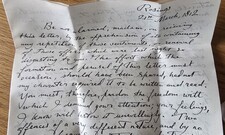 Rosings
March, 1812
Be not alarmed, madam, on receiving
this letter, by the apprehension of its containing
any repetition of those sentiments or renewal
The effort which the
formation and perusal of this letter must
occasion, should have been spared, had not
my character required it to be written and read.
You must pardon the freedom with
which I demand your attention; your feelings,
I know will bestow it unwillingly, Two
offences of a very different nature, and by no